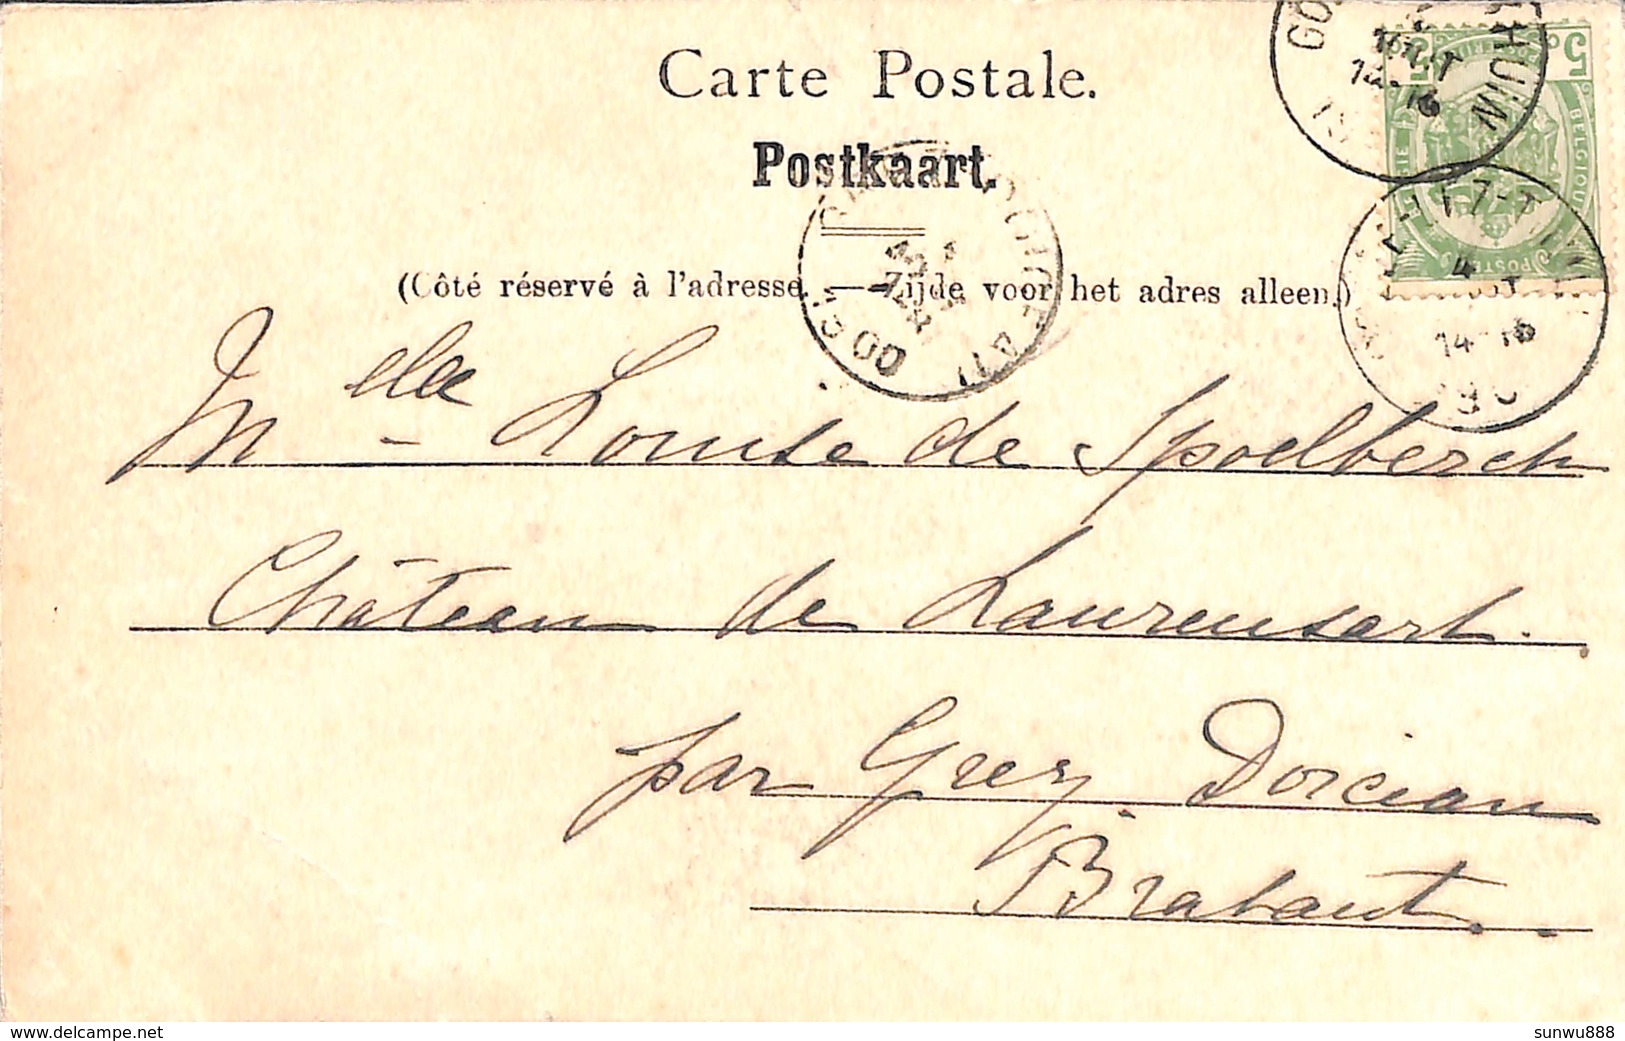 Carte Postale.
Postkaart.
(Côté réservé à l'adresse. — Zijde voor het adres alleen.)
Melle Louise de Spoelberch
Château de Laurensart.
par Grez Doiceau
Brabant.
5 5
BELGIQUE
POSTES
14-16
14-16
delcampe.net
sunwu888